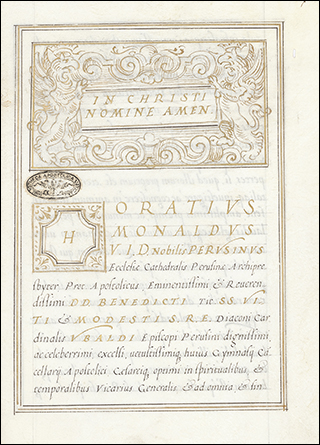 IN CHRISTI
NOMINE AMEN
HORATIVS
MONALDVS
V. I. D. Nobilis PERVSINVS
Ecclesiæ Cathedralis Perusinæ Archipre
sbyter Prot. Apostolicus, Eminentissimi & Reueren
dissimi D D. BENEDICTI tit. SS. VI
TI & MODESTI S. R. E. Diaconi Car
dinalis VBALDI Episcopi Perusini dignissimi,
ac celeberrimi, excelsi, uetustissimiq, huius Gymnasij Cā
cellarij Apostolici Cesareiq, optimi in spiritualibus, &
temporalibus Vicarius Generalis & ad omnia & sin